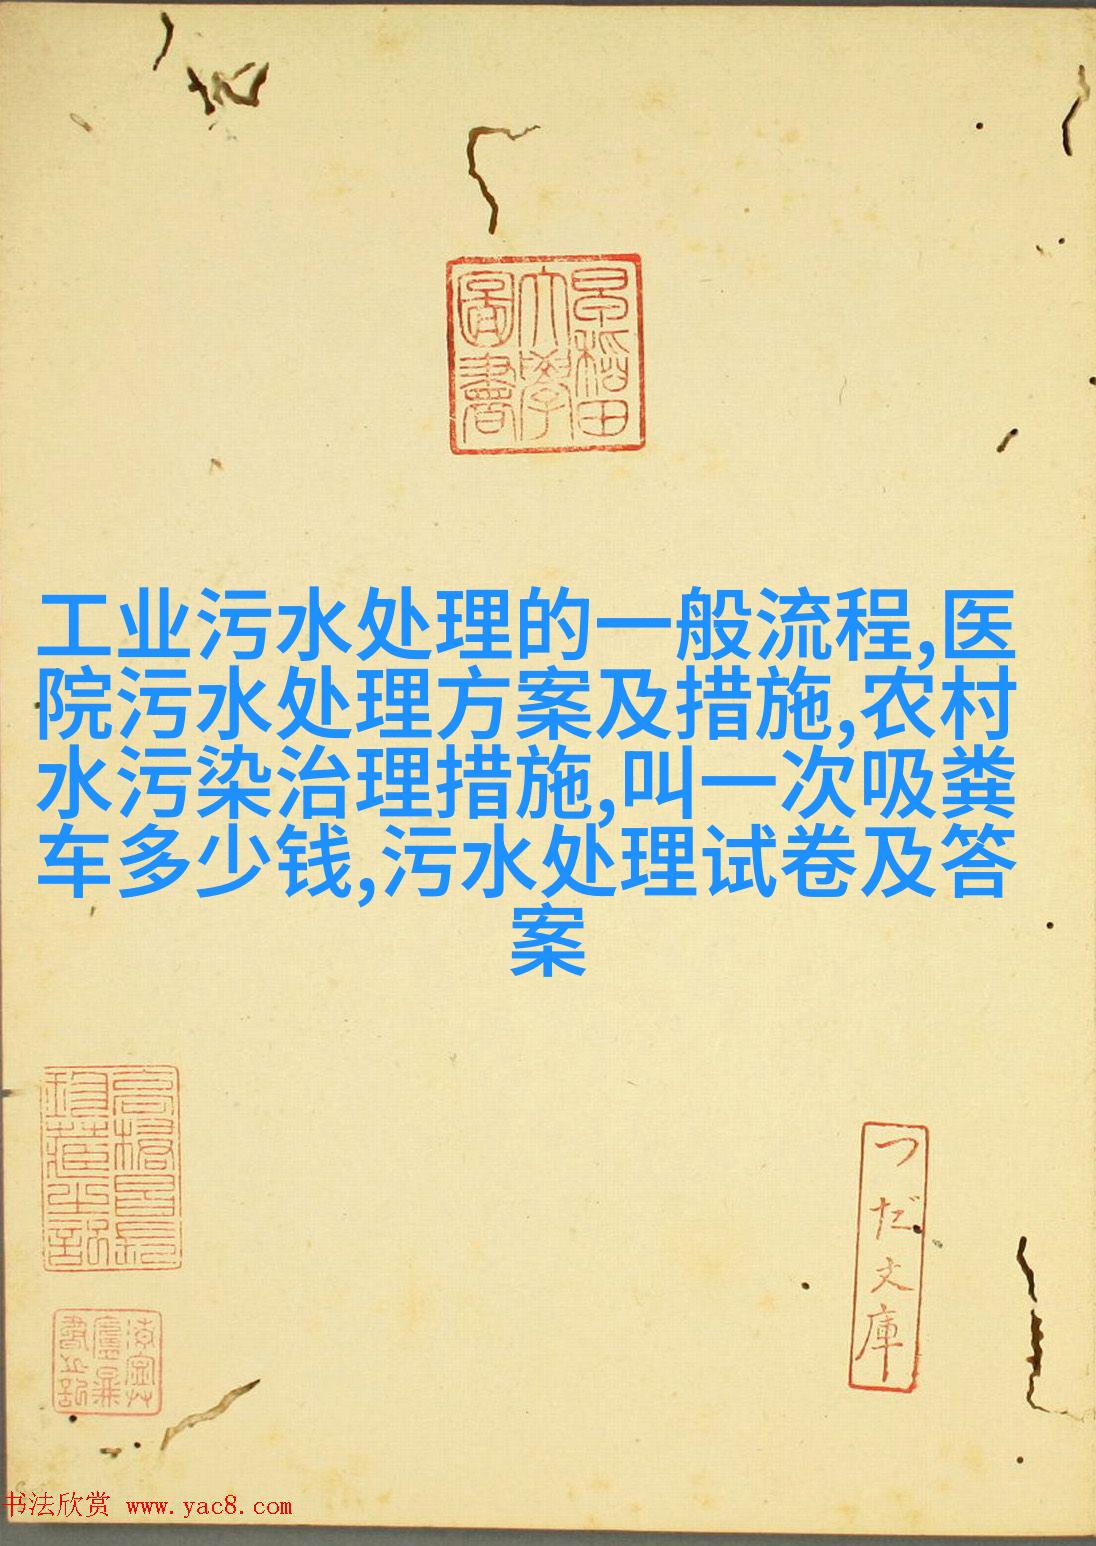 早稻田
大學
圖書
工业污水处理的一般流程,医
院污水处理方案及措施,农村
水污染治理措施,叫一次吸粪
车多少钱,污水处理试卷及答
案
つだ文庫
书法欣赏 www.yac8.com